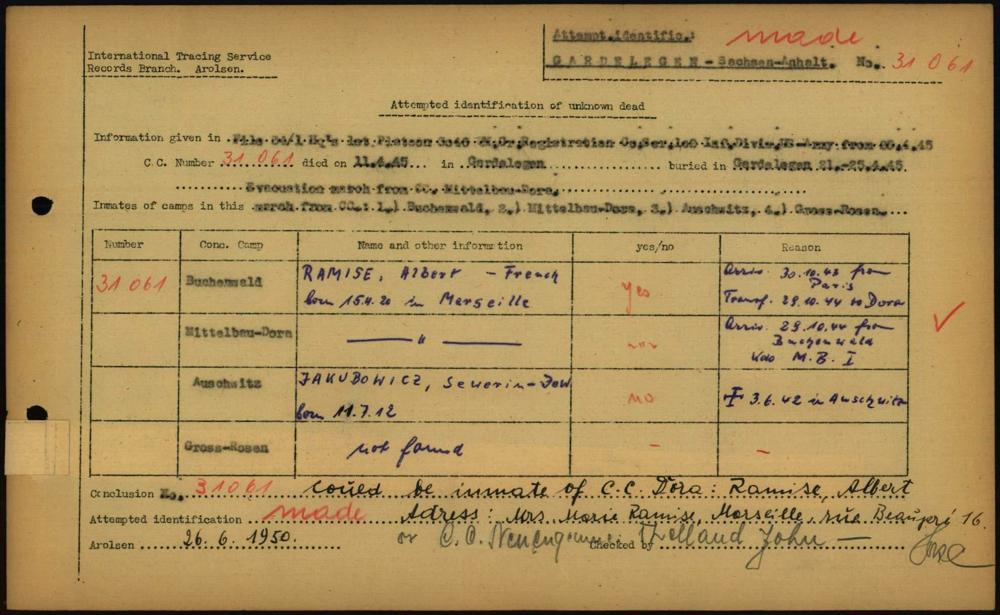 International Tracing Service
Records Branch. Arolsen.
Attempt.identific.: made
GARDELEGEN - Sachsen-Anhalt. No. 31 061
Attempted identification of unknown dead
Information given in File 84/1 Hq's 1st Platoon 3046 Registration Co, 100 Inf, Divis, US-Army from 45
C.C. Number 31.061 died on 11.4.45 in Gardelegen buried in Gardelegen 21.-25.4.45.
Evacuation march from CC. Mittelbau-Dora,
Inmates of camps in this march from CC.: 1.) Buchenwald, 2.) Mittelbau-Dora, 3.) Auschwitz, 4.) Gross-Rosen.
Number Conc. Camp Name and other information yes/no Reason
31 061 Buchenwald RAMISE, Albert - French born 15.4.20 in Marseille yes Arriv. 30.10.43 from Paris Transf. 29.10.44 to Dora
Mittelbau-Dora — " — Arriv. 29.10.44 from Buchenwald Kdo M.B. I
Auschwitz JAKUBOWICZ, Sewerin- born 11.7.12 no 3.6.42 in Auschwitz
Gross-Rosen not found - -
Conclusion No. 31061 could be inmate of C.C. Dora: Ramise, Albert
Attempted identification made Adress: Mrs Marie Ramise, Marseille, rue 16.
Arolsen 26.6.1950. or C.C. Checked by John —